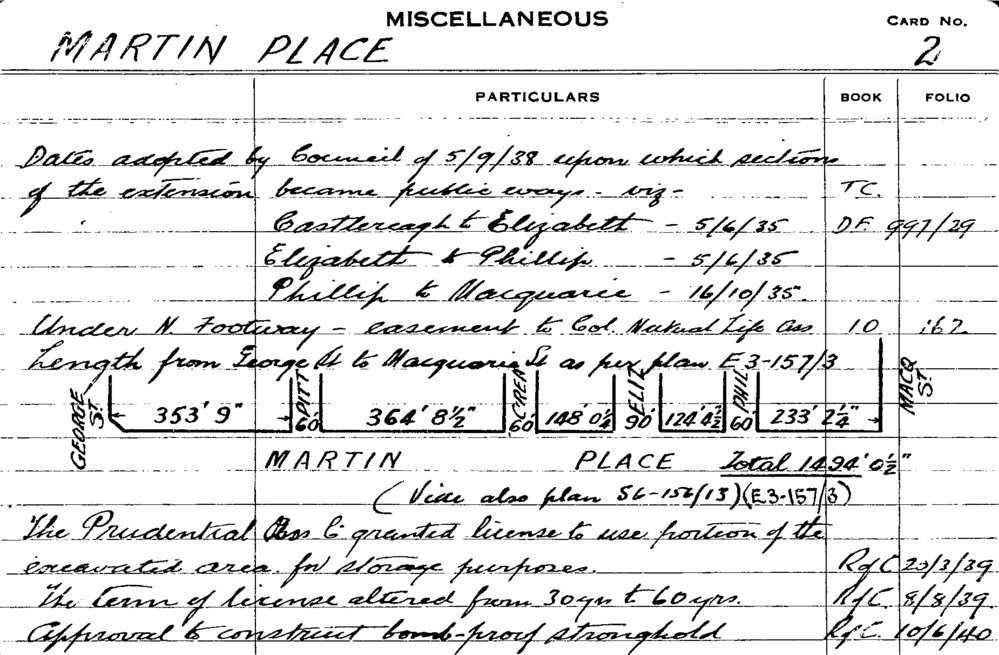 MISCELLANEOUS
CARD No.
MARTIN PLACE 2
PARTICULARS BOOK FOLIO
Dates adopted by Council of 5/9/38 upon which sections
of the extension became public ways - viz - T.C.
Castlereagh to Elizabeth - 5/6/35 D.F. 997/29
Elizabeth to Phillip - 5/6/35
Phillip to Macquarie - 16/10/35.
Under N. Footway - easement to Col. Mutual Life Ass 10 162
Length from George St to Macquarie St as per plan E3-157/3
GEORGE ST. 353' 9" PITT 60' 364' 8½" CREA 60' 148' 0¼ ELIZ 90' 124' 4½ PHIL 60 233' 2¼" MACQ ST.
MARTIN PLACE Total 1494' 0½"
(Vide also plan S6-156/13)(E3-157/3)
The Prudential Ass Co granted license to use portion of the
excavated area for storage purposes. RofC 20/3/39
The term of license altered from 30 yrs to 60 yrs. RofC. 8/8/39.
Approval to construct bomb-proof stronghold RofC. 10/6/40